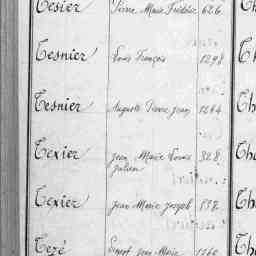 Tesier Pierre Marie Frédéric 626.
Tesnier Louis François 1298.
Tesnier Auguste Pierre Jean 1264
Texier Jean Marie Louis 328.
Julien
Texier Jean Marie Joseph 138.
Tezé Ernest Jean Marie 1160